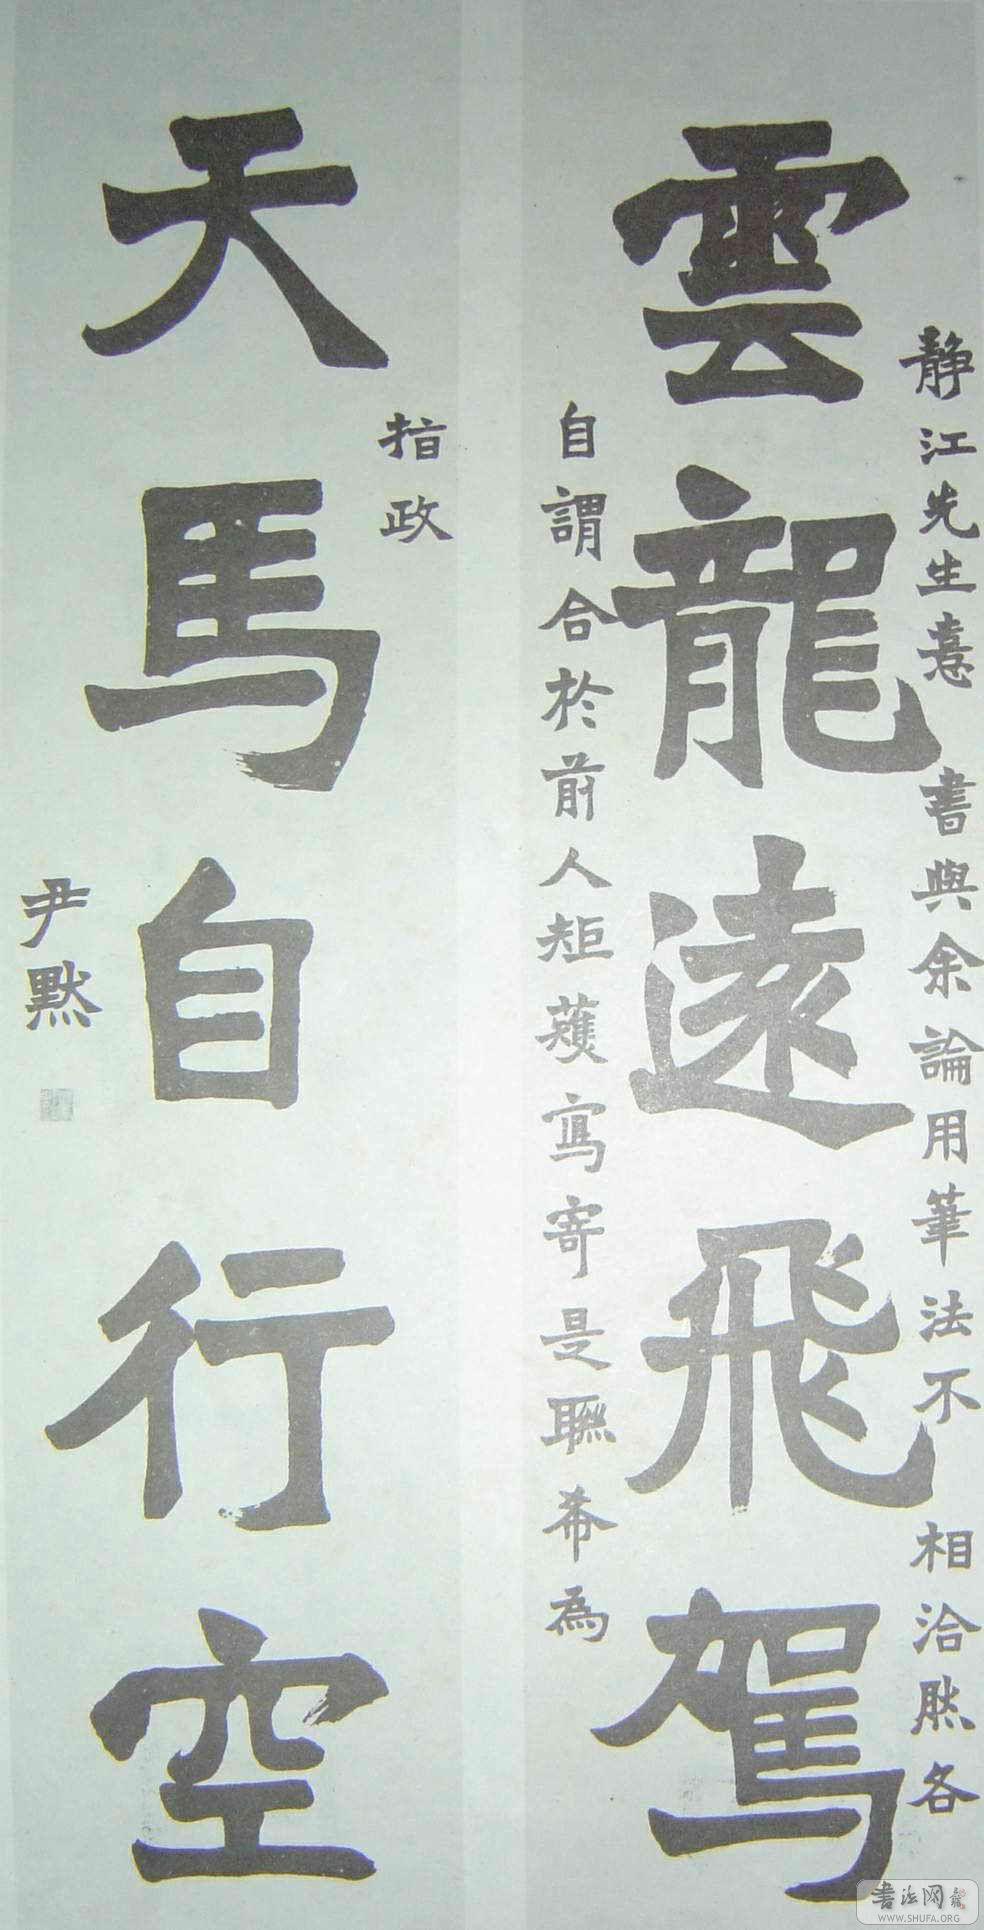 靜江先生憙書與余論用筆法不相洽然各
雲龍遠飛駕
自謂合於前人矩蒦寫寄是聯希為
指政
天馬自行空
尹默
書法网
WWW.SHUFA.ORG